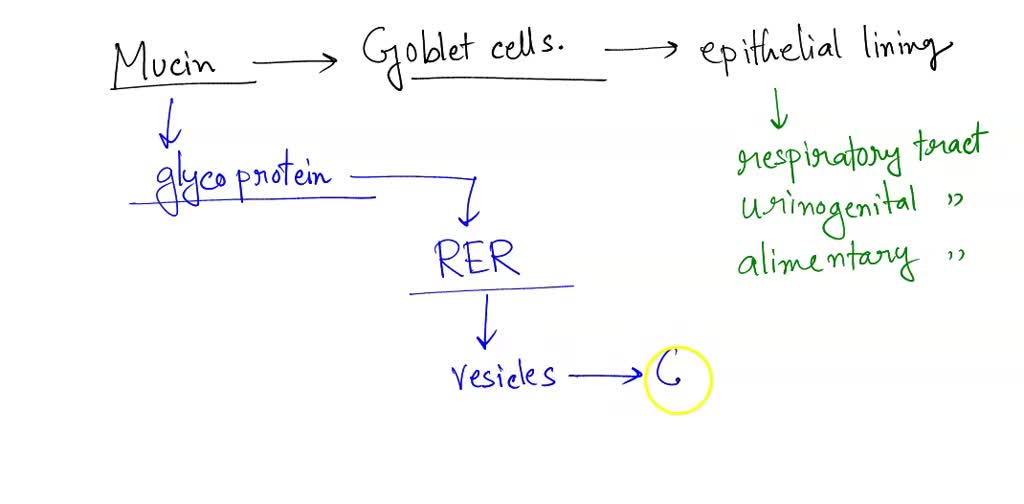 Mucin → Goblet cells. → epithelial lining
glycoprotein
respiratory tract
urinogenital "
alimentary "
RER
vesicles → G